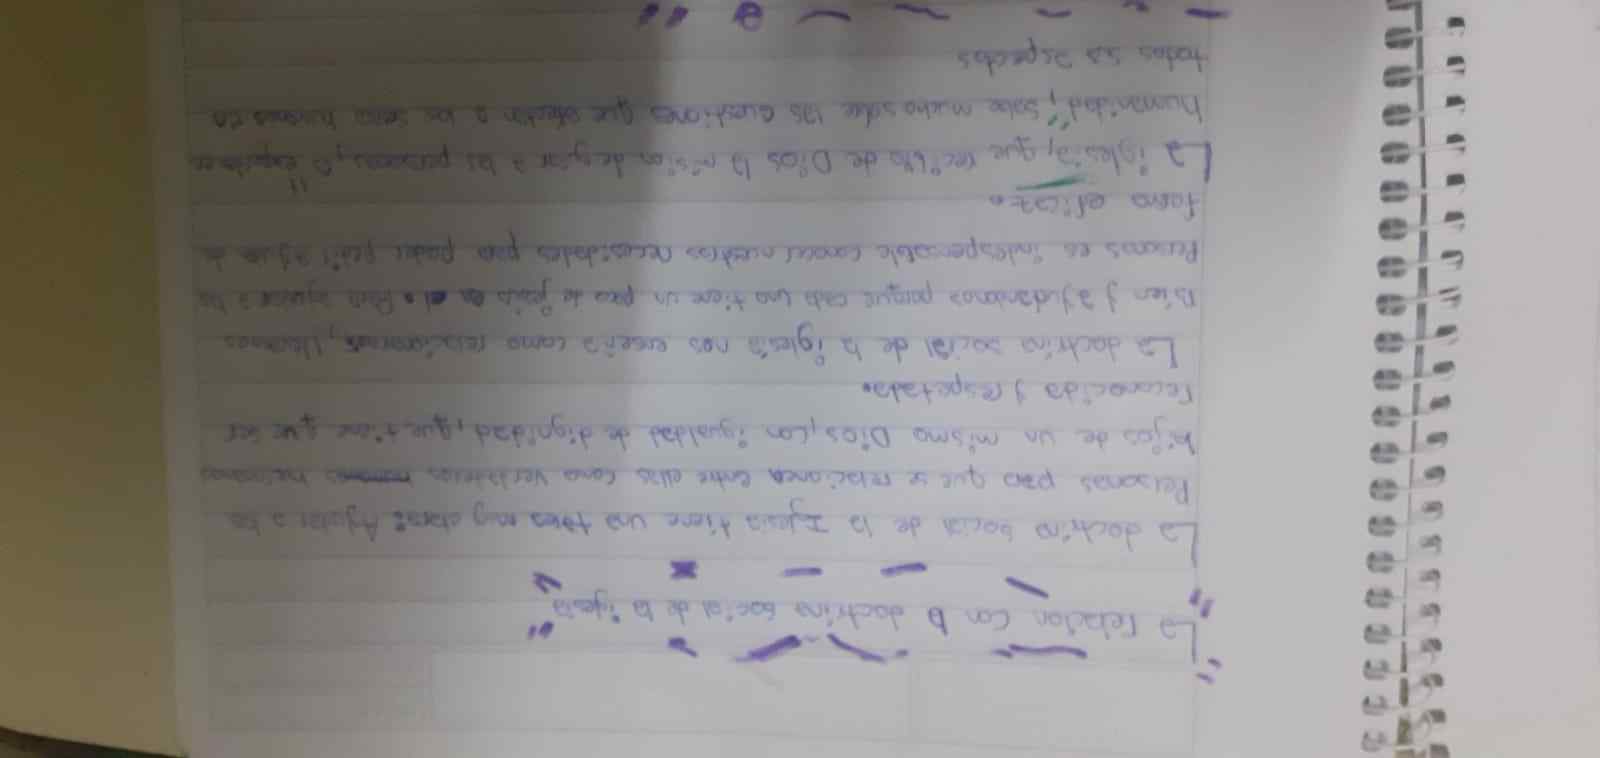 "La relacion con la doctrina social de la iglesia"
La doctrina social de la Iglesia tiene una tarea muy clara: Ayudar a las
Personas para que se relacionen entre ellas como verdaderos hermanos
hijos de un mismo Dios, con igualdad de dignidad, que tiene que ser
reconocida y respetada.
La doctrina social de la iglesia nos enseña como relacionarnos, llevarnos
Bien y ayudarnos porque cada uno tiene un para de Para ayudar a las
Personas es indespensable conocer nuestras necesidades para poder pedir ayuda de
forma eficaz.
La iglesia, que recibio de Dios la mision de guiar a las personas, es "experta en
humanidad", sabe mucho sobre las cuestiones que afectan a los seres humanos en
todos sus aspectos